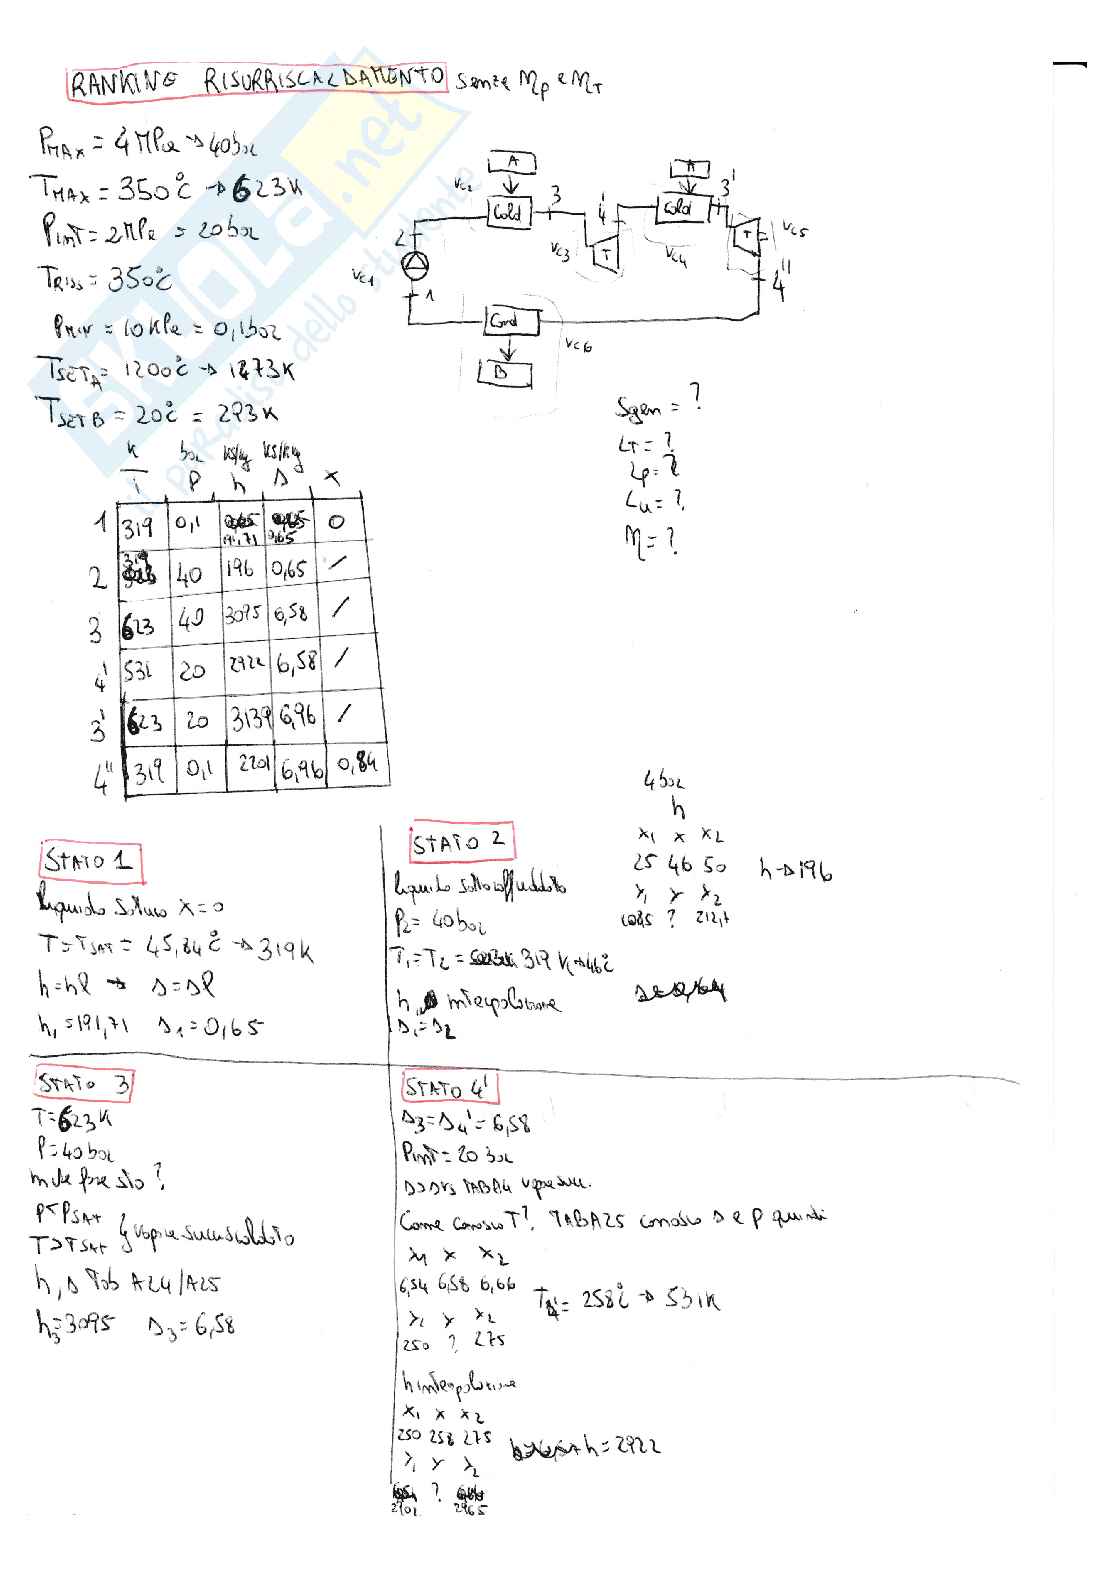 RANKINE RISURRISCALDAMENTO senza ηp e ηT
PMAX = 4 MPa → 40 bar
TMAX = 350°C → 623 K
PINT = 2 MPa = 20 bar
TRISS = 350°C
PMIN = 10 KPa = 0,1 bar
TSETA = 1200°C → 1473 K
TSETB = 20°C = 293 K
A
A
VC2
Cald
3
4'
Cald
3'
T
VC5
2
VC3
T
VC4
4''
VC1
1
Cond
VC6
B
Sgen = ?
LT = ?
Lp = ?
Lu = ?
η = ?
K bar KJ/kg KJ/Kkg
T P h s x
1 319 0,1 191,71 0,65 0
2 319 40 196 0,65 /
3 623 40 3095 6,58 /
4' 531 20 2922 6,58 /
3' 623 20 3139 6,96 /
4'' 319 0,1 2201 6,96 0,84
STATO 1
liquido saturo x = 0
T = TSAT = 45,84°C → 319 K
h = hl → s = sl
h1 = 191,71 s1 = 0,65
STATO 2
liquido sottoraffreddato
P2 = 40 bar
T1 = T2 = 319 K → 46°C
h, interpolazione
s1 = s2
4 bar
h
x1 x x2
25 46 50
y1 y y2
? 212,7
h → 196
STATO 3
T = 623 K
P = 40 bar
in che fase sto?
P < PSAT
T > TSAT } vapore surriscaldato
h, s Tab A24/A25
h3 = 3095 s3 = 6,58
STATO 4'
s3 = s4' = 6,58
PINT = 20 bar
s > svs TABA4 vapore surr.
Come conosco T? TABA25 conosco s e p quindi
x1 x x2
6,54 6,58 6,66
y1 y y2
250 ? 275
T4' = 258°C → 531 K
h interpolazione
x1 x x2
250 258 275
y1 y y2
2902 ? 2965
h = 2922
SKUOLA.net
il paradiso dello studente